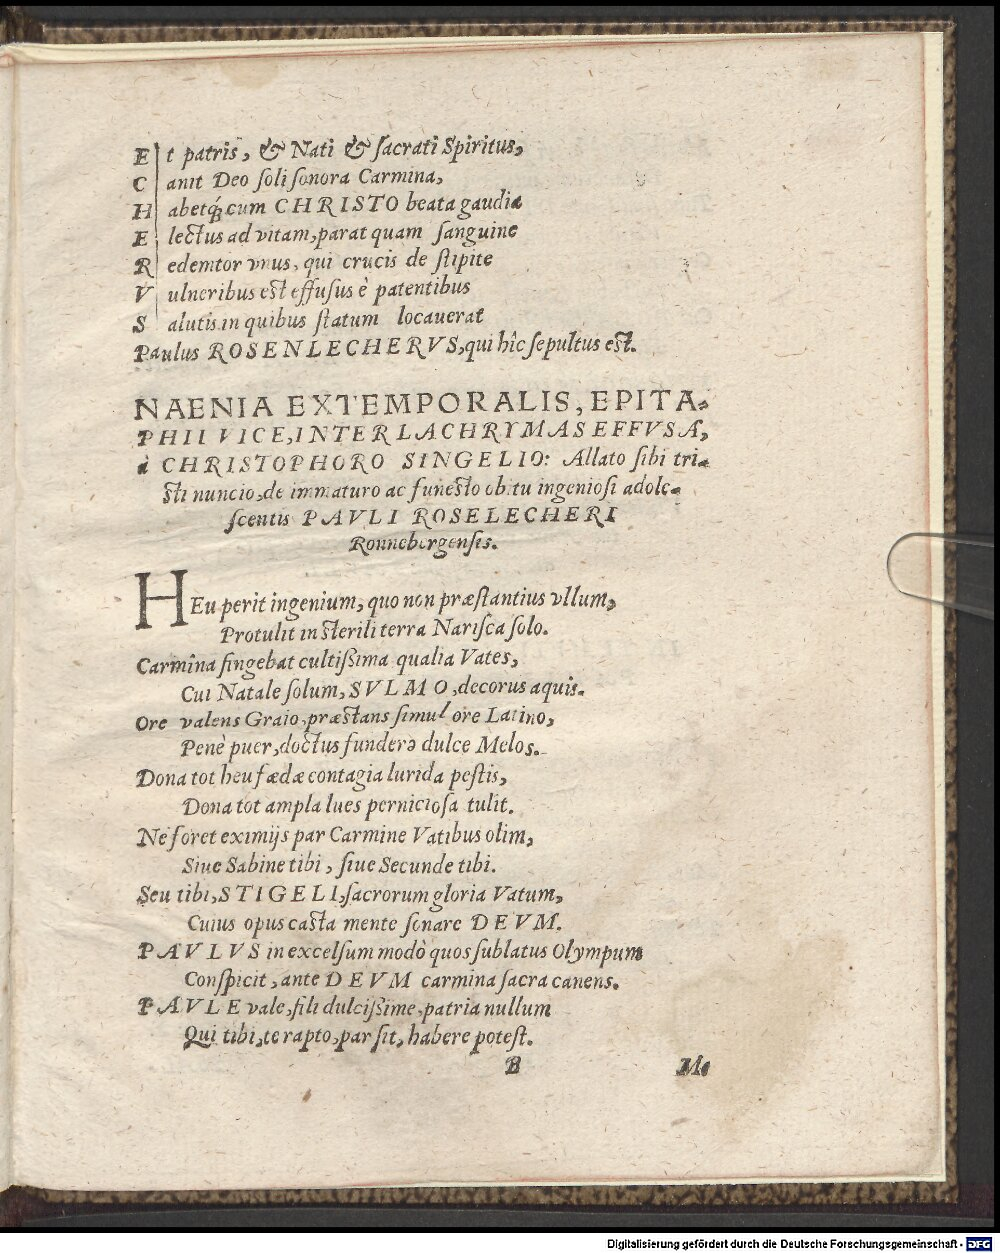 E t patris, & Nati & ſacrati Spiritus,
C anit Deo ſoli ſonora Carmina,
H abetq́; cum CHRISTO beata gaudia
E lectus ad vitam, parat quam ſanguine
R edemtor vnus, qui crucis de ſtipite
V ulneribus eſt effuſus è patentibus
S alutis, in quibus ſtatum locauerat
Paulus ROSENLECHERVS, qui hîc ſepultus eſt.
NAENIA EXTEMPORALIS, EPITA-
PHII VICE, INTER LACHRYMAS EFFVSA,
à CHRISTOPHORO SINGELIO: Allato ſibi tri-
ſti nuncio, de immaturo ac funeſto obitu ingenioſi adole-
ſcentis PAVLI ROSELECHERI
Ronnebergenſis.
HEu perit ingenium, quo non præſtantius vllum,
Protulit in ſterili terra Nariſca ſolo.
Carmina fingebat cultiſſima qualia Vates,
Cui Natale ſolum, SVLMO, decorus aquis.
Ore valens Graio, præſtans ſimul ore Latino,
Penè puer, doctus fundere dulce Melos.
Dona tot heu fædæ contagia lurida peſtis,
Dona tot ampla lues pernicioſa tulit.
Ne foret eximijs par Carmine Vatibus olim,
Siue Sabine tibi, ſiue Secunde tibi.
Seu tibi, STIGELI, ſacrorum gloria Vatum,
Cuius opus caſta mente ſonare DEVM.
PAVLVS in excelſum modò quos ſublatus Olympum
Conſpicit, ante DEVM carmina ſacra canens.
PAVLE vale, fili dulciſſime, patria nullum
Qui tibi, te rapto, par ſit, habere poteſt.
B Me
Digitalisierung gefördert durch die Deutsche Forschungsgemeinschaft - DFG